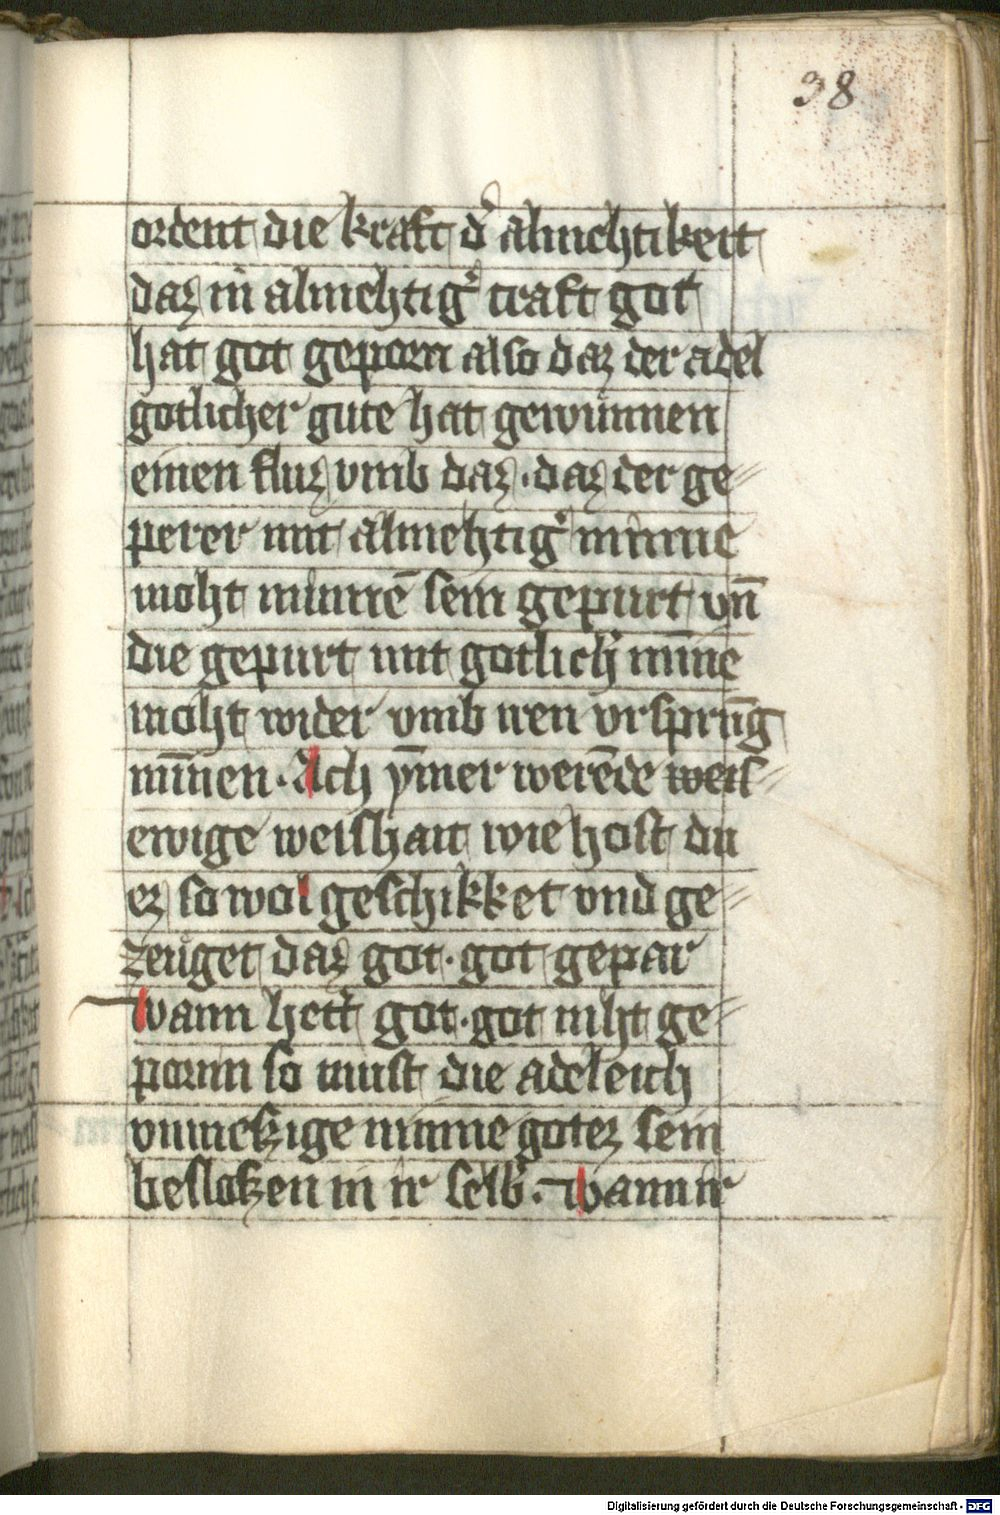 38
ordent die kraft d' almehtikeit
daz in almehtig' craft got
hat got geporn also daz der adel
gotlicher gute hat gewunnen
einen fluz vmb daz. daz der ge-
perer mit almehtig' minne
moht minnē sein gepurt vn̄
die gepurt mit gotlich' minne
moht wider vmb iren vrsprūg
minnen. Ach ȳmer werēde weis-
ewige weishait wie host du
ez so wol geschikket vnd ge-
zeuget daz got. got gepar
Wann hett' got. got niht ge-
pornn so must die adeleich
vnmezzige minne gotez sein
beslozzen in ir selb'. Wann ir
Digitalisierung gefördert durch die Deutsche Forschungsgemeinschaft - DFG